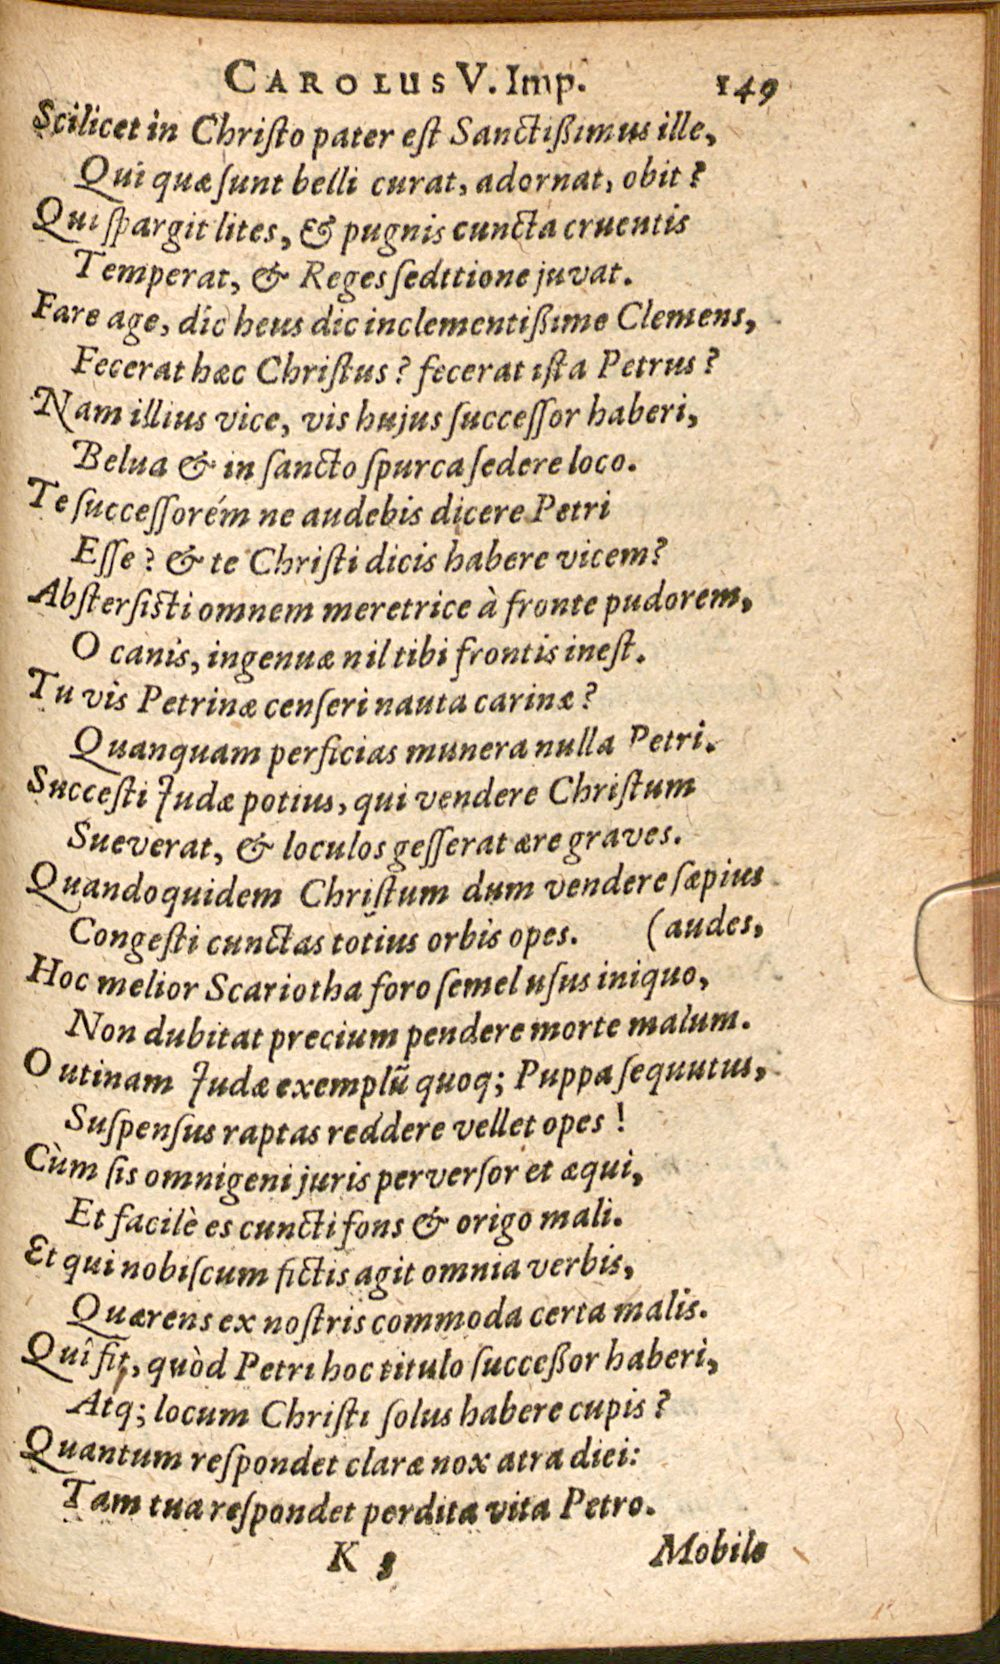 CAROLUS V. Imp. 149
Scilicet in Chriſto pater eſt Sanctißimus ille,
Qui quæ ſunt belli curat, adornat, obit?
Qui ſpargit lites, & pugnis cuncta cruentis
Temperat, & Reges ſedttione juvat.
Fare age, dic heus dic inclementißime Clemens,
Fecerat hæc Chriſtus? fecerat iſta Petrus?
Nam illius vice, vis hujus ſucceſſor haberi,
Belua & in ſancto ſpurca ſedere loco.
Te ſucceſſorém ne audebis dicere Petri
Eſſe? & te Chriſti dicis habere vicem?
Abſterſisti omnem meretrice à fronte pudorem,
O canis, ingenuæ nil tibi frontis ineſt.
Tu vis Petrinæ cenſeri nauta carinæ?
Quanquam perficias munera nulla Petri.
Succeſti Judæ potius, qui vendere Chriſtum
Sueverat, & loculos geſſerat ære graves.
Quandoquidem Chriſtum dum vendere ſæpius
Congeſti cunctas totius orbis opes. (audes,
Hoc melior Scariotha foro ſemel uſus iniquo,
Non dubitat precium pendere morte malum.
O utinam Judæ exemplũ quoq; Puppa ſequutus,
Suſpenſus raptas reddere vellet opes!
Cùm ſis omnigeni juris perverſor et æqui,
Et facilè es cuncti fons & origo mali.
Et qui nobiſcum fictis agit omnia verbis,
Quærens ex noſtris commoda certa malis.
Quî fit, quòd Petri hoc titulo succeßor haberi,
Atq; locum Chriſti ſolus habere cupis?
Quantum reſpondet claræ nox atra diei:
Tam tua reſpondet perdita vita Petro.
K 3 Mobile